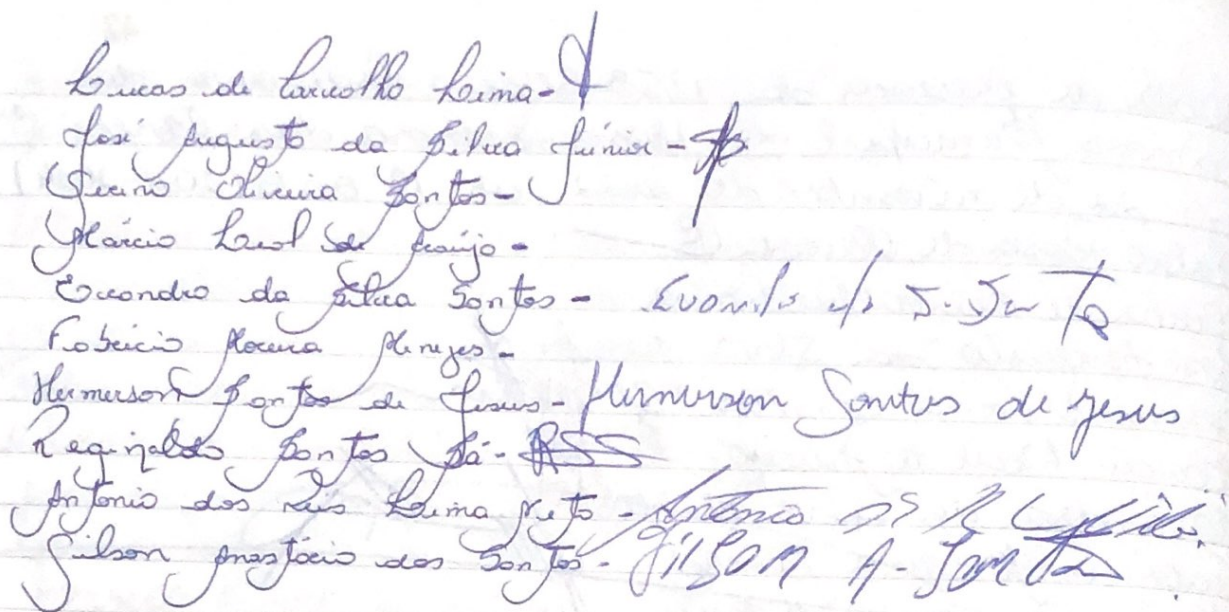 Lucas de Carvalho Lima -
José Augusto da Silva Júnior -
Oliveira Santos -
Márcio Leal de Araújo -
Evandio da Silva Santos -
Fabricio Moreira Menezes -
Hermerson Santos de Jesus - Hermerson Santos de Jesus
Reginaldo Santos Sá - RSS
Antonio dos Reis Lima Neto - Antônio
Gilson Anastácio dos Santos - Gilson A-